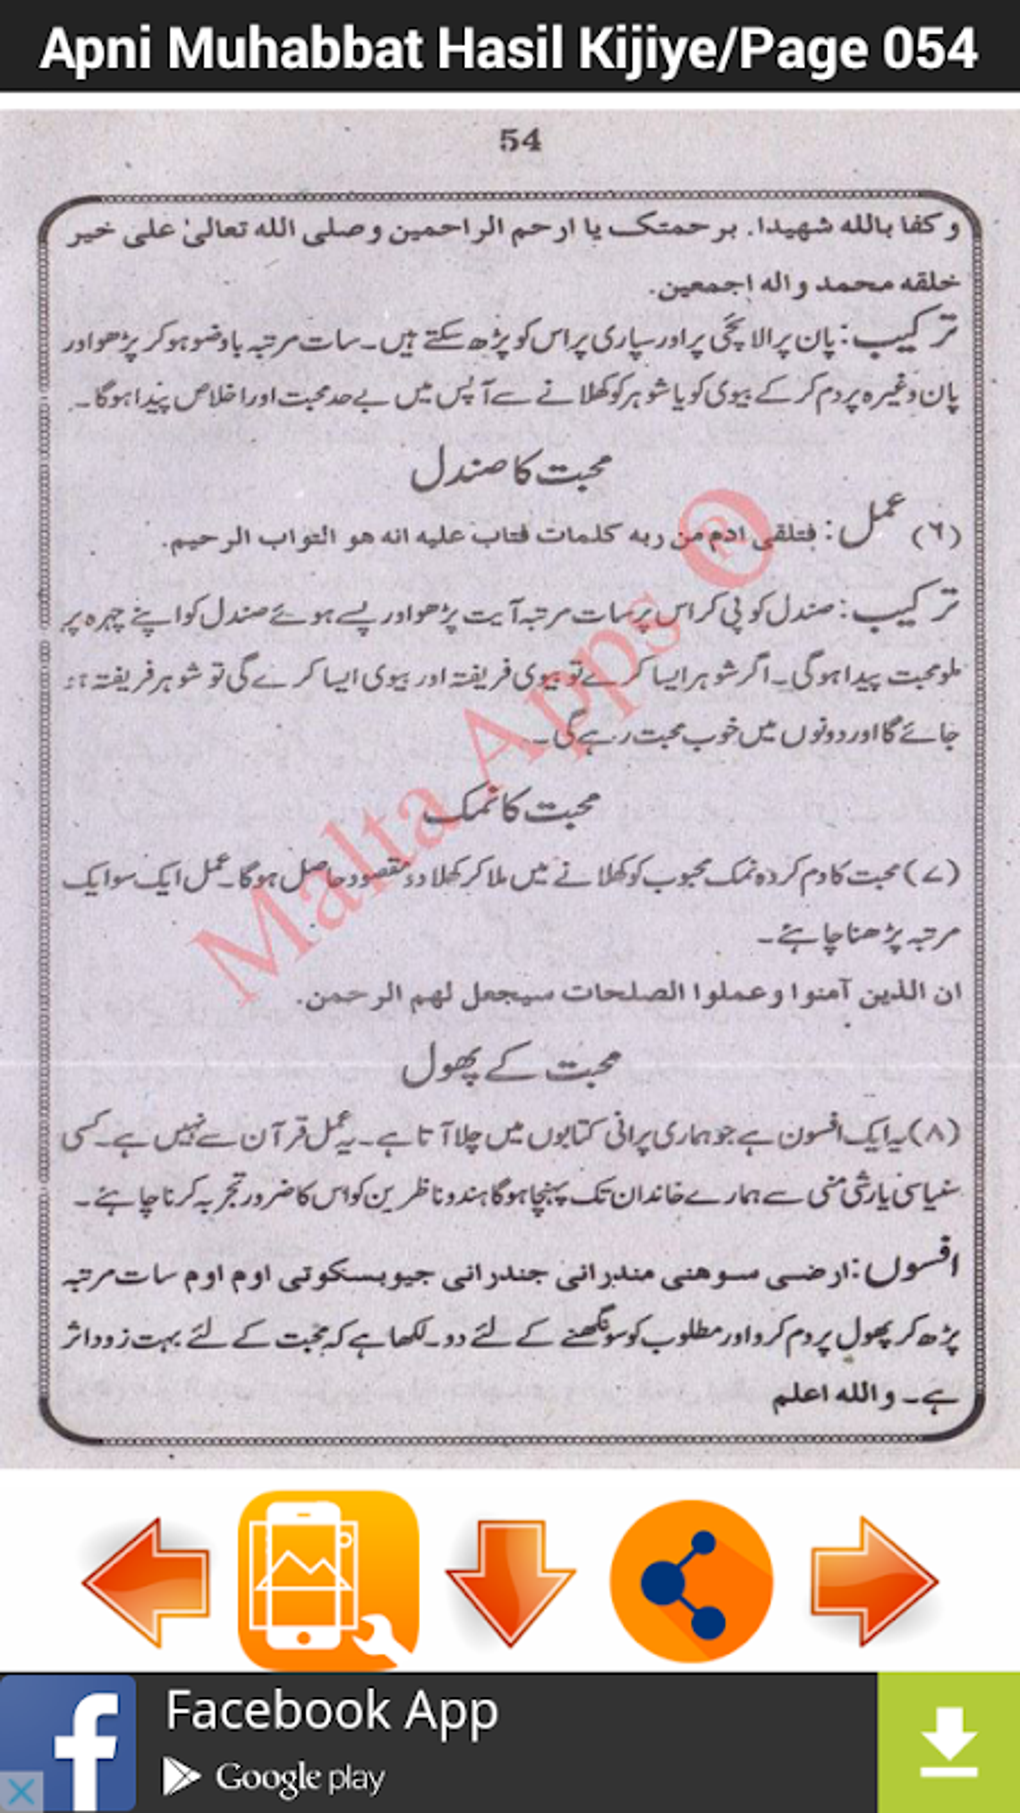 Apni Muhabbat Hasil Kijiye/Page 054
54
و کفا باللہ شهیدا. برحمتک یا ارحم الراحمین وصلی اللہ تعالیٰ علی خیر
خلقه محمد واله اجمعین.
ترکیب: پان پر الائچی پر اور سپاری پر اس کو پڑھ سکتے ہیں۔ سات مرتبہ باوضو ہو کر پڑھو اور
پان وغیرہ پر دم کر کے بیوی کو یا شوہر کو کھلانے سے آپس میں بے حد محبت اور اخلاص پیدا ہوگا۔
محبت کا صندل
(٦) عمل: فتلقی ادم من ربه کلمات فتاب علیه انه هو التواب الرحیم.
ترکیب: صندل کو پی کر اس پر سات مرتبہ آیت پڑھو اور پسے ہوئے صندل کو اپنے چہرہ پر
ملو محبت پیدا ہوگی۔ اگر شوہر ایسا کرے تو بیوی فریفتہ اور بیوی ایسا کرے گی تو شوہر فریفتہ ہو
جائے گا اور دونوں میں خوب محبت رہے گی۔
محبت کا نمک
(۷) محبت کا دم کردہ نمک محبوب کو کھلانے میں ملا کر کھلا دو مقصود حاصل ہوگا۔ عمل ایک سو ایک
مرتبہ پڑھنا چاہئے۔
ان الذین آمنوا وعملوا الصلحات سیجعل لهم الرحمن.
محبت کے پھول
(۸) یہ ایک افسون ہے جو ہماری پرانی کتابوں میں چلا آتا ہے۔ یہ عمل قرآن سے نہیں ہے۔ کسی
سنیاسی یا رشی منی سے ہمارے خاندان تک پہنچا ہوگا ہندو ناظرین کو اس کا ضرور تجربہ کرنا چاہئے۔
افسوں: ارضی سوهنی مندرانی جندرانی جیوبسکوتی اوم اوم سات مرتبہ
پڑھ کر پھول پر دم کرو اور مطلوب کو سونگھنے کے لئے دو۔ لکھا ہے کہ محبت کے لئے بہت زود اثر
ہے۔ واللہ اعلم
Malta Apps ®
Facebook App
Google play